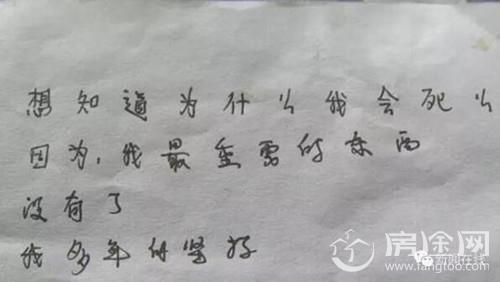 想知道为什么我会死么
因为，我最重要的东西
没有了
我多年的坚持
房途网
www.fangtoo.com
新郑在线